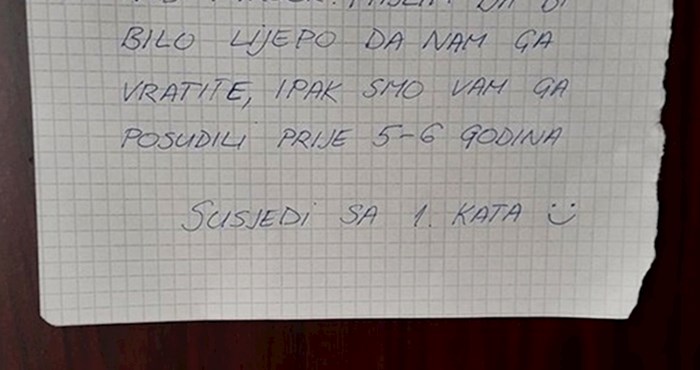 MISLIM DA BI
BILO LIJEPO DA NAM GA
VRATITE, IPAK SMO VAM GA
POSUDILI PRIJE 5-6 GODINA
SUSJEDI SA 1. KATA :)